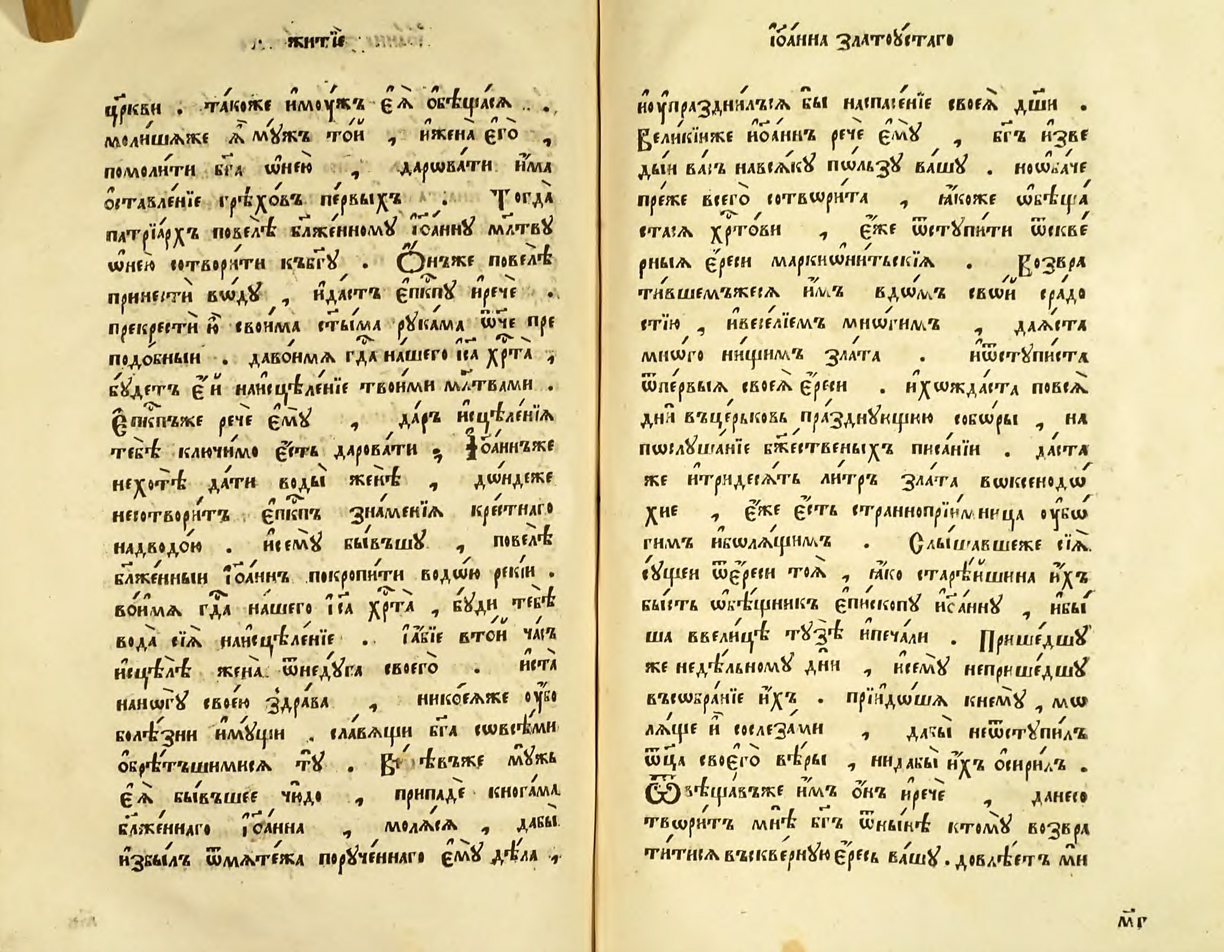 житїе
цр҃кви . та́коже и҆моу́жъ є҆ѧ̀ ѻ҆бѣща́сѧ .
моли́шѧже ѧ҆̀ мꙋ́жъ то́й , и҆жена̀ є҆гѡ̀ ,
помоли́ти бг҃а ѡ҆не́ю , дарѡва́ти и҆́ма
ѻ҆ставле́нїе грѣхо́въ пе́рвыхъ . Тогда̀
патрїа́рхъ повелѣ̀ бл҃же́нномꙋ і҆ѡ́аннꙋ мл҃твꙋ
ѡ҆не́ю сотвори́ти къбг҃ꙋ . Ѻ҆́нъже повелѣ̀
принестѝ вѡ́дꙋ , и҆да́стъ є҆пкⷭ҇пꙋ и҆речѐ .
прекрестѝ ю҆̀ свои́ма ст҃ы́ма рꙋка́ма ѿ́че пре
подо́бныи . давои́мѧ гдⷭ҇а на́шего і҆с҃а хрⷭ҇та̀ ,
бꙋ́детъ є҆́й наисцѣле́нїе твои́ми мл҃твами .
Є҆пкⷭ҇пъже речѐ є҆мꙋ̀ , да́ръ и҆сцѣле́нїѧ
тебѣ̀ ключи́мо є҆́сть дарова́ти ; І҆ѡа́ннъже
нехотѣ̀ да́ти воды̀ женѣ̀ , до́ндеже
несотвори́тъ є҆пкⷭ҇пъ зна́менїѧ кре́стнаго
надводо́ю . и҆семꙋ̀ бы́въшꙋ , повелѣ̀
бл҃же́нныи і҆ѡ́аннъ покропи́ти водѡ́ю реки́и .
вои́мѧ гдⷭ҇а на́шего і҆с҃а хрⷭ҇та̀ , бꙋ́ди тебѣ̀
вода̀ сїѧ̀ наисцѣле́нїе . І҆а́бїе вто́й ча́съ
и҆сцѣлѣ̀ жена̀ ѿнедꙋ́га своего̀ . и҆ста̀
нано́гꙋ свое́ю здра́ва , никое́ѧже оу҆́бо
болѣ́зни и҆мꙋ́щи . сла́вѧщи бг҃а совсѣ́ми
ѻ҆брѣ́тъшимисѧ тꙋ̀ . мꙋ́жь
є҆ѧ̀ бы́въшее чю́до , припадѐ кнога́ма
бл҃же́ннаго і҆ѡ́анна , молѧ́сѧ , дабы̀
и҆збы́лъ ѿмѧте́жа порꙋче́ннаго є҆мꙋ̀ дѣ́ла ,
і҆ѡа́нна златоꙋ́стаго
но́упразднилъсѧ бы̀ наспасе́нїе своеѧ̀ дш҃и .
Вели́кїиже и҆ѡа́ннъ речѐ є҆мꙋ̀ , бг҃ъ и҆зве
ды́и ва́съ навсѧ́кꙋ по́льзꙋ ва́шꙋ . ноѡба́че
пре́же всего̀ сотвори́та , ꙗ҆́коже ѡ҆бѣща́
стасѧ хрⷭ҇то́ви , є҆́же ѿстꙋпи́ти ѿскве́
рныѧ є҆́реси маркиѡни́тьскїѧ . Возвра
ти́вшемъжесѧ и҆́мъ вдо́мъ сво́й сра́до
стїю , и҆весе́лїемъ мно́гимъ , даѧ́ста
мно́го ни́щимъ зла́та . и҆ѿстꙋпи́ста
ѿпе́рвыѧ своеѧ̀ є҆́реси . и҆хожда́ста повсѧ̀
дни̑ въце́рьковь пра́зднꙋющию собо́ры , на
послꙋша́нїе бж҃е́ственыхъ писа́нїи . да́ста
же и҆три́десѧть ли́тръ зла́та вѡксенодо́
хие , є҆́же є҆́сть странноприїи́мница оу҆бѡ́
гимъ и҆болѧ́щимъ . Слы́шавшеже сїѧ̀
сꙋ́щеи ѿє҆́реси тоѧ̀ , ꙗ҆́ко старѣ́йшина и҆́хъ
бы́сть ѡ҆бѣ́щникъ є҆пи́скопꙋ и҆ѡа́ннꙋ , и҆бы́
ша ввели́цѣ тꙋзѣ̀ и҆печа́ли . Прише́дшꙋ
же недѣ́льномꙋ дни̑ , и҆семꙋ̀ неприше́дшꙋ
въсобра́нїе и҆́хъ . прїидо́шѧ кнемꙋ̀ , мо
лѧ́ще и҆̀ сослеза́ми , дабы̀ неѿстꙋпи́лъ
ѿц҃а своего̀ вѣ́ры , нидабы̀ и҆́хъ ѻ҆сири́лъ .
Ѿвѣща́въже и҆́мъ ѻ҆́нъ и҆речѐ , данесо
твори́тъ мнѣ̀ бг҃ъ ѿны́нѣ ктомꙋ̀ возвра
ти́тисѧ въскве́рнꙋю є҆́ресь ва́шꙋ . довлѣ́етъ мѝ
м҃г